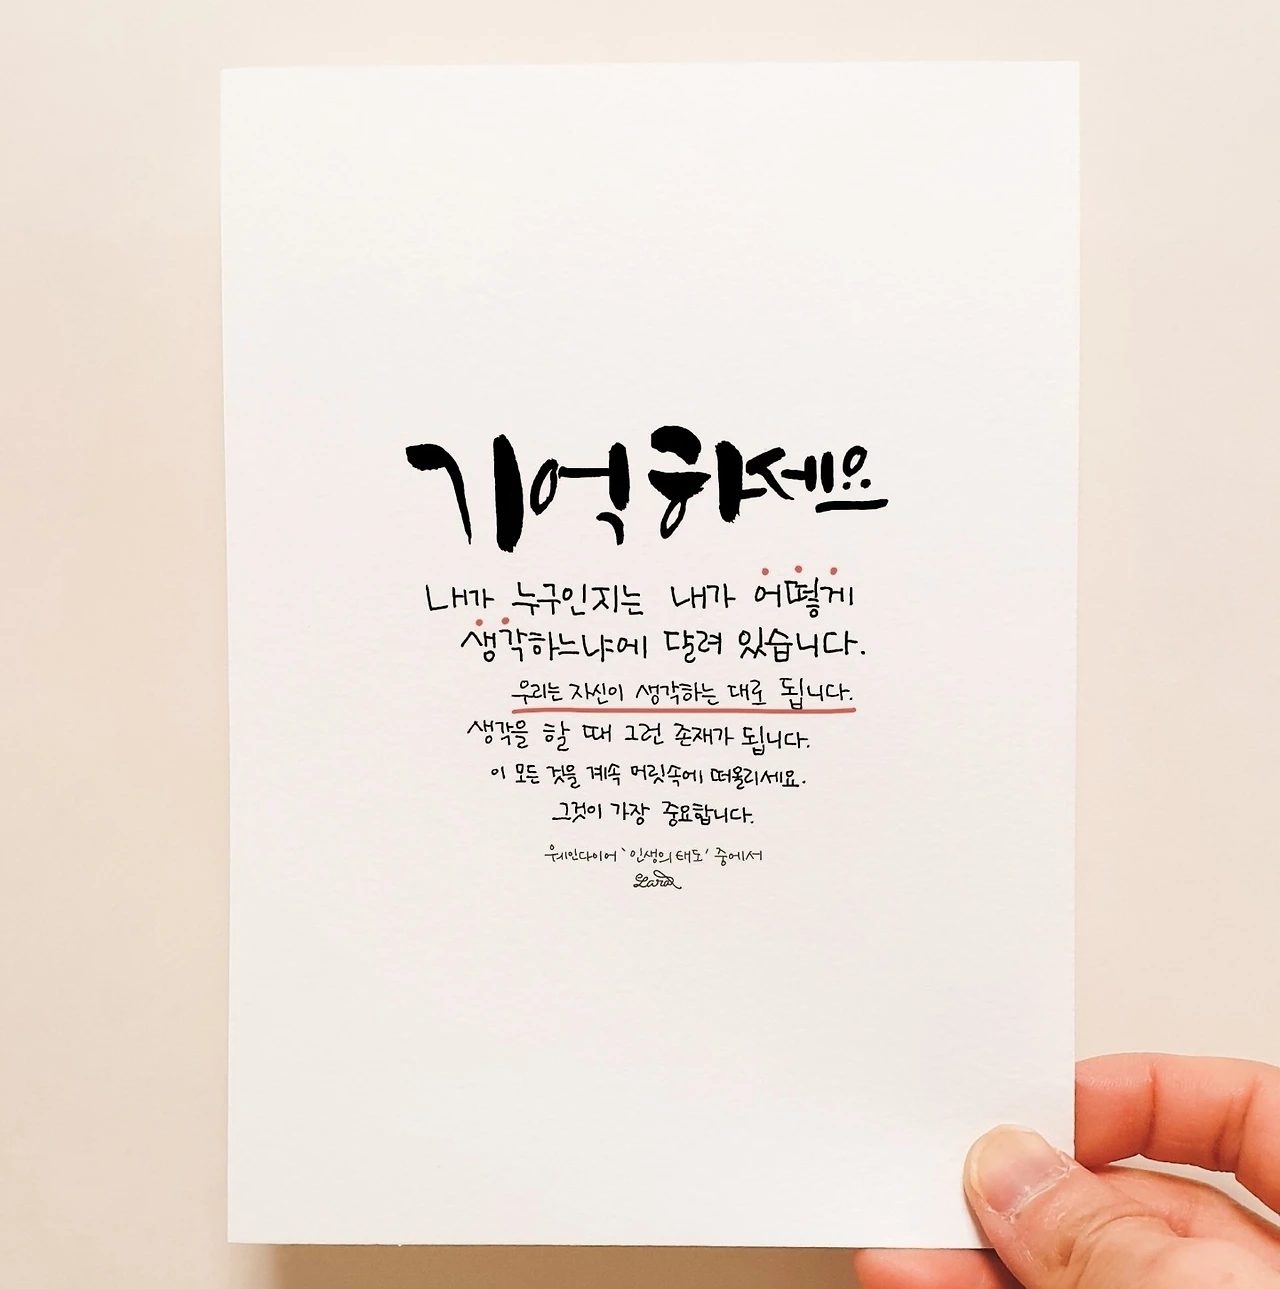 기억하세요
내가 누구인지는 내가 어떻게
생각하느냐에 달려 있습니다.
우리는 자신이 생각하는 대로 됩니다.
생각을 할 때 그런 존재가 됩니다.
이 모든 것을 계속 머릿속에 떠올리세요.
그것이 가장 중요합니다.
웨인다이어 '인생의 태도' 중에서
Lara